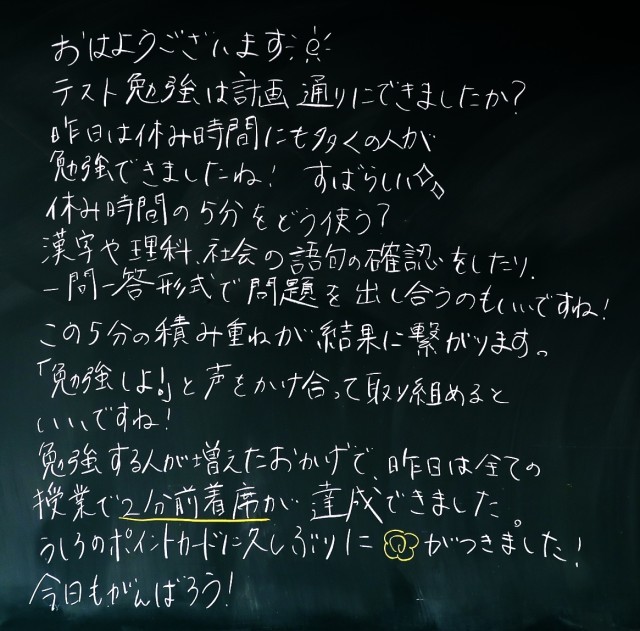 おはようございます
テスト勉強は計画通りにできましたか?
昨日は休み時間にも多くの人が
勉強できましたね! すばらしい
休み時間の5分をどう使う?
漢字や理科、社会の語句の確認をしたり、
一問一答形式で問題を出し合うのもいいですね!
この5分の積み重ねが結果に繋がります。
「勉強しよ!」と声をかけ合って取り組めると
いいですね!
勉強する人が増えたおかげで、昨日は全ての
授業で2分前着席が達成できました。
うしろのポイントカードに久しぶりに がつきました!
今日もがんばろう!